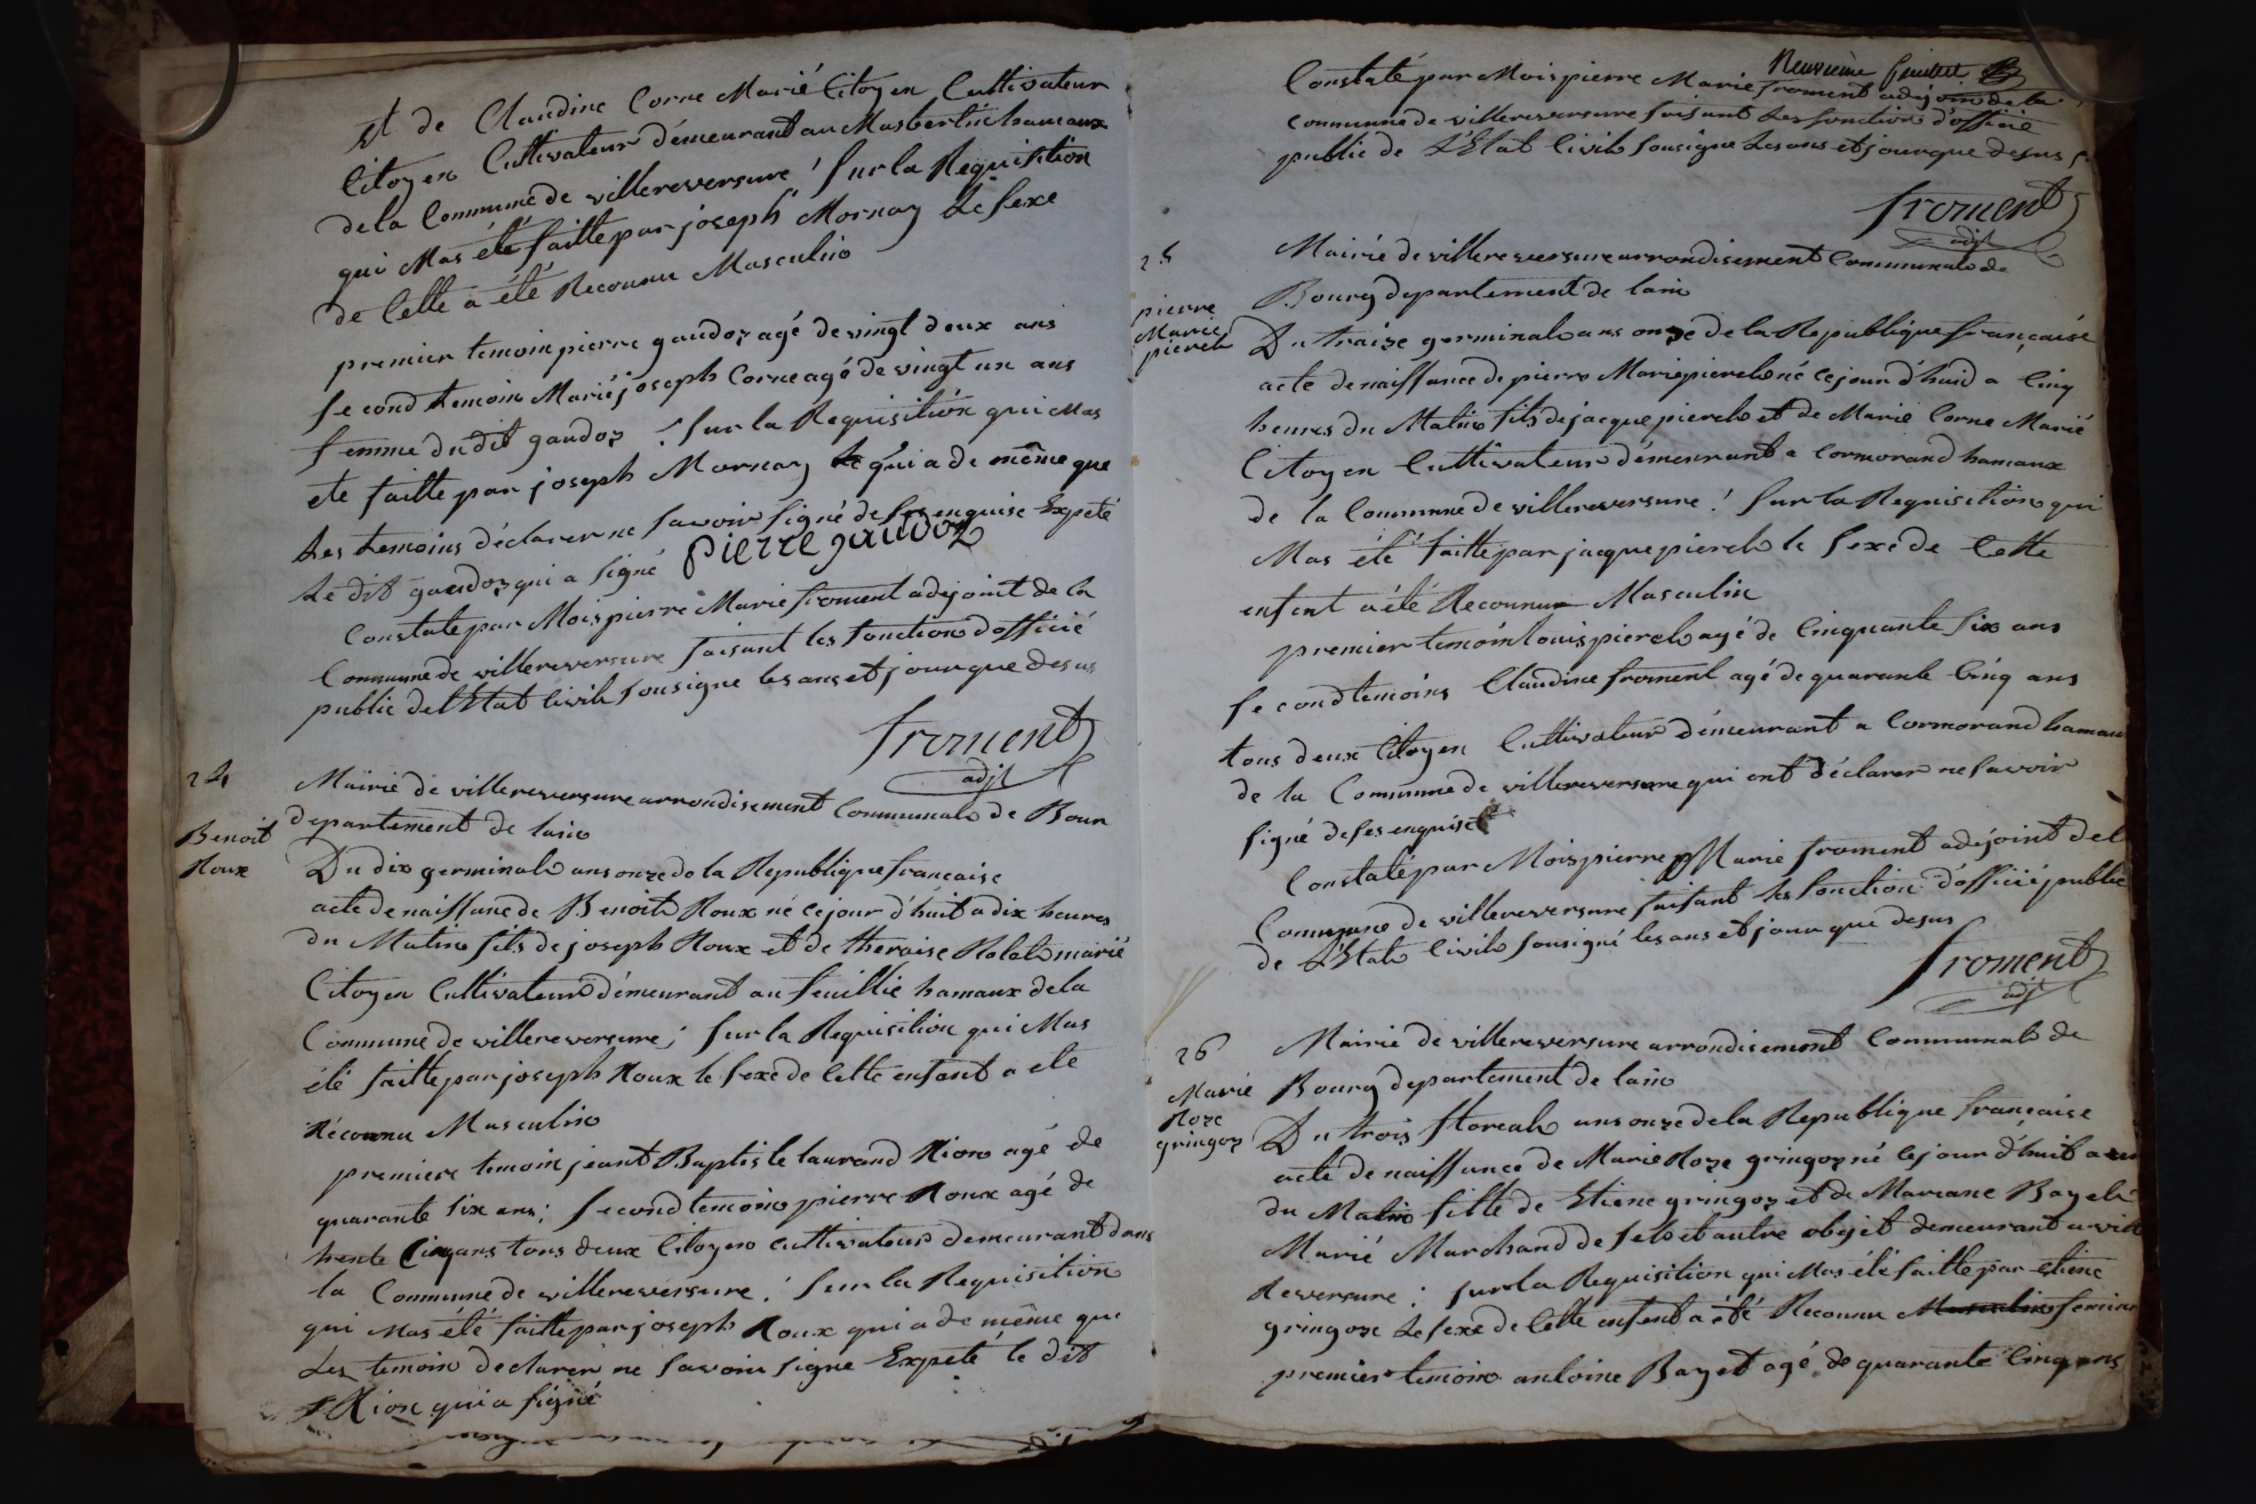 et de Claudine Corne Marié Citoyen Cultivateur
Citoyen Cultivateur démeurant au Masbertin hameaux
de la Commune de villereversure ! Sur la Requisition
qui Mas été faitte par joseph Mornay Le sexe
de Cette a été Reconnu Masculin
premier temoin pierre gaudoz agé de vingt deux ans
second temoin Marié joseph Corne agé de vingt un ans
femme du dit gaudoz ! Sur la Requisition qui Mas
ete faitte par joseph Mornay qui a de même que
Les temoins déclarer ne savoir signé de ses enquise Expeté
Le dit gaudoz qui a signé pierre gaudoz
Constate par Mois pierre Marie froment adejoint de la
Commune de villereversure faisant les fonction d'officié
public del'Etat Civile sousigne les ans et jour que desus
froment
adjt
24
Benoit
Roux
Mairie de villereversure arrondisement Communale de Bour
departement de lain
Du dix germinale ans onze de la Republique francaise
acte de naissance de Benoit Roux né cejour d'huit a dix heures
du Matin fils de joseph Roux et de theraise Rolet marié
Citoyen Cultivateur démeurant au feuillie hamaux de la
Commune de villereversure ; Sur la Requisition qui Mas
été faitte par joseph Roux le sexe de Cette enfant a ete
Réconnu Masculin
premiere temoin jeant Baptiste laurand Rion agé de
quarante six ans ; second temoin pierre Roux agé de
trente Cinq ans tous deux Citoyen cultivateur demeurant dans
la Commune de villereversure ! Sur la Requisition
qui Mas été faitte par joseph Roux qui a de même que
Les temoin declarer ne savoir signe Expeté le dit
Rion qui a signé
Neuvième feuillet
Constaté par Mois pierre Marie froment adejoin de la
commune de villereversure faisant Les fonction d'officié
public de L'Etat Civile sousigne Les ans et jour que desus
froment
adjt
25
pierre
Marie
pierch
Mairié de villereversure arrondisement Communale de
Bourg departement de lain
Du traize germinale ans onze de la Republique française
acte de naissance de pierre Marie né ce jour d'huid a Cinq
heures du Matin fils de jacque et de Marie Corne Marié
Citoyen Cultivateur démeurant a Cormorand hamaux
de la Commune de villereversure ! Sur la Requisition qui
Mas été faitte par jacque le sexe de Cette
enfent a été Reconnu Masculin
premier temoin louis agé de Cinquante six ans
second temoins Claudine froment agé de quarante Cinq ans
tous deux Citoyen Cultivateur démeurant a Cormorand hamau
de la Commune de villereversure qui ont déclarer ne savoir
signé de ses enquise
Constaté par Mois pierre Marie froment adejoint de l
Commune de villereversure faisant les fonction d'officié public
de L'Etat Civile sousigné les ans et jour que desus
froment
adjt
26
Marie
Roze
gringoz
Mairie de villereversure arrondisement Communale de
Bourg departement de lain
Du trois floreale ans onze de la Republique française
acte de naissance de Marie Roze gringoz né cejour d'huit a
du Matin fille de Etiene gringoz et de Mariane Bayet
Marié Marchand de sel et autre objet demeurant a ville
Reversure ; sur la Requisition qui Mas été faitte par etiene
gringoze Le sexe de Cette enfent a été Reconnu Masculin femin
premier temoin antoine Bayet agé de quarante Cinq ans